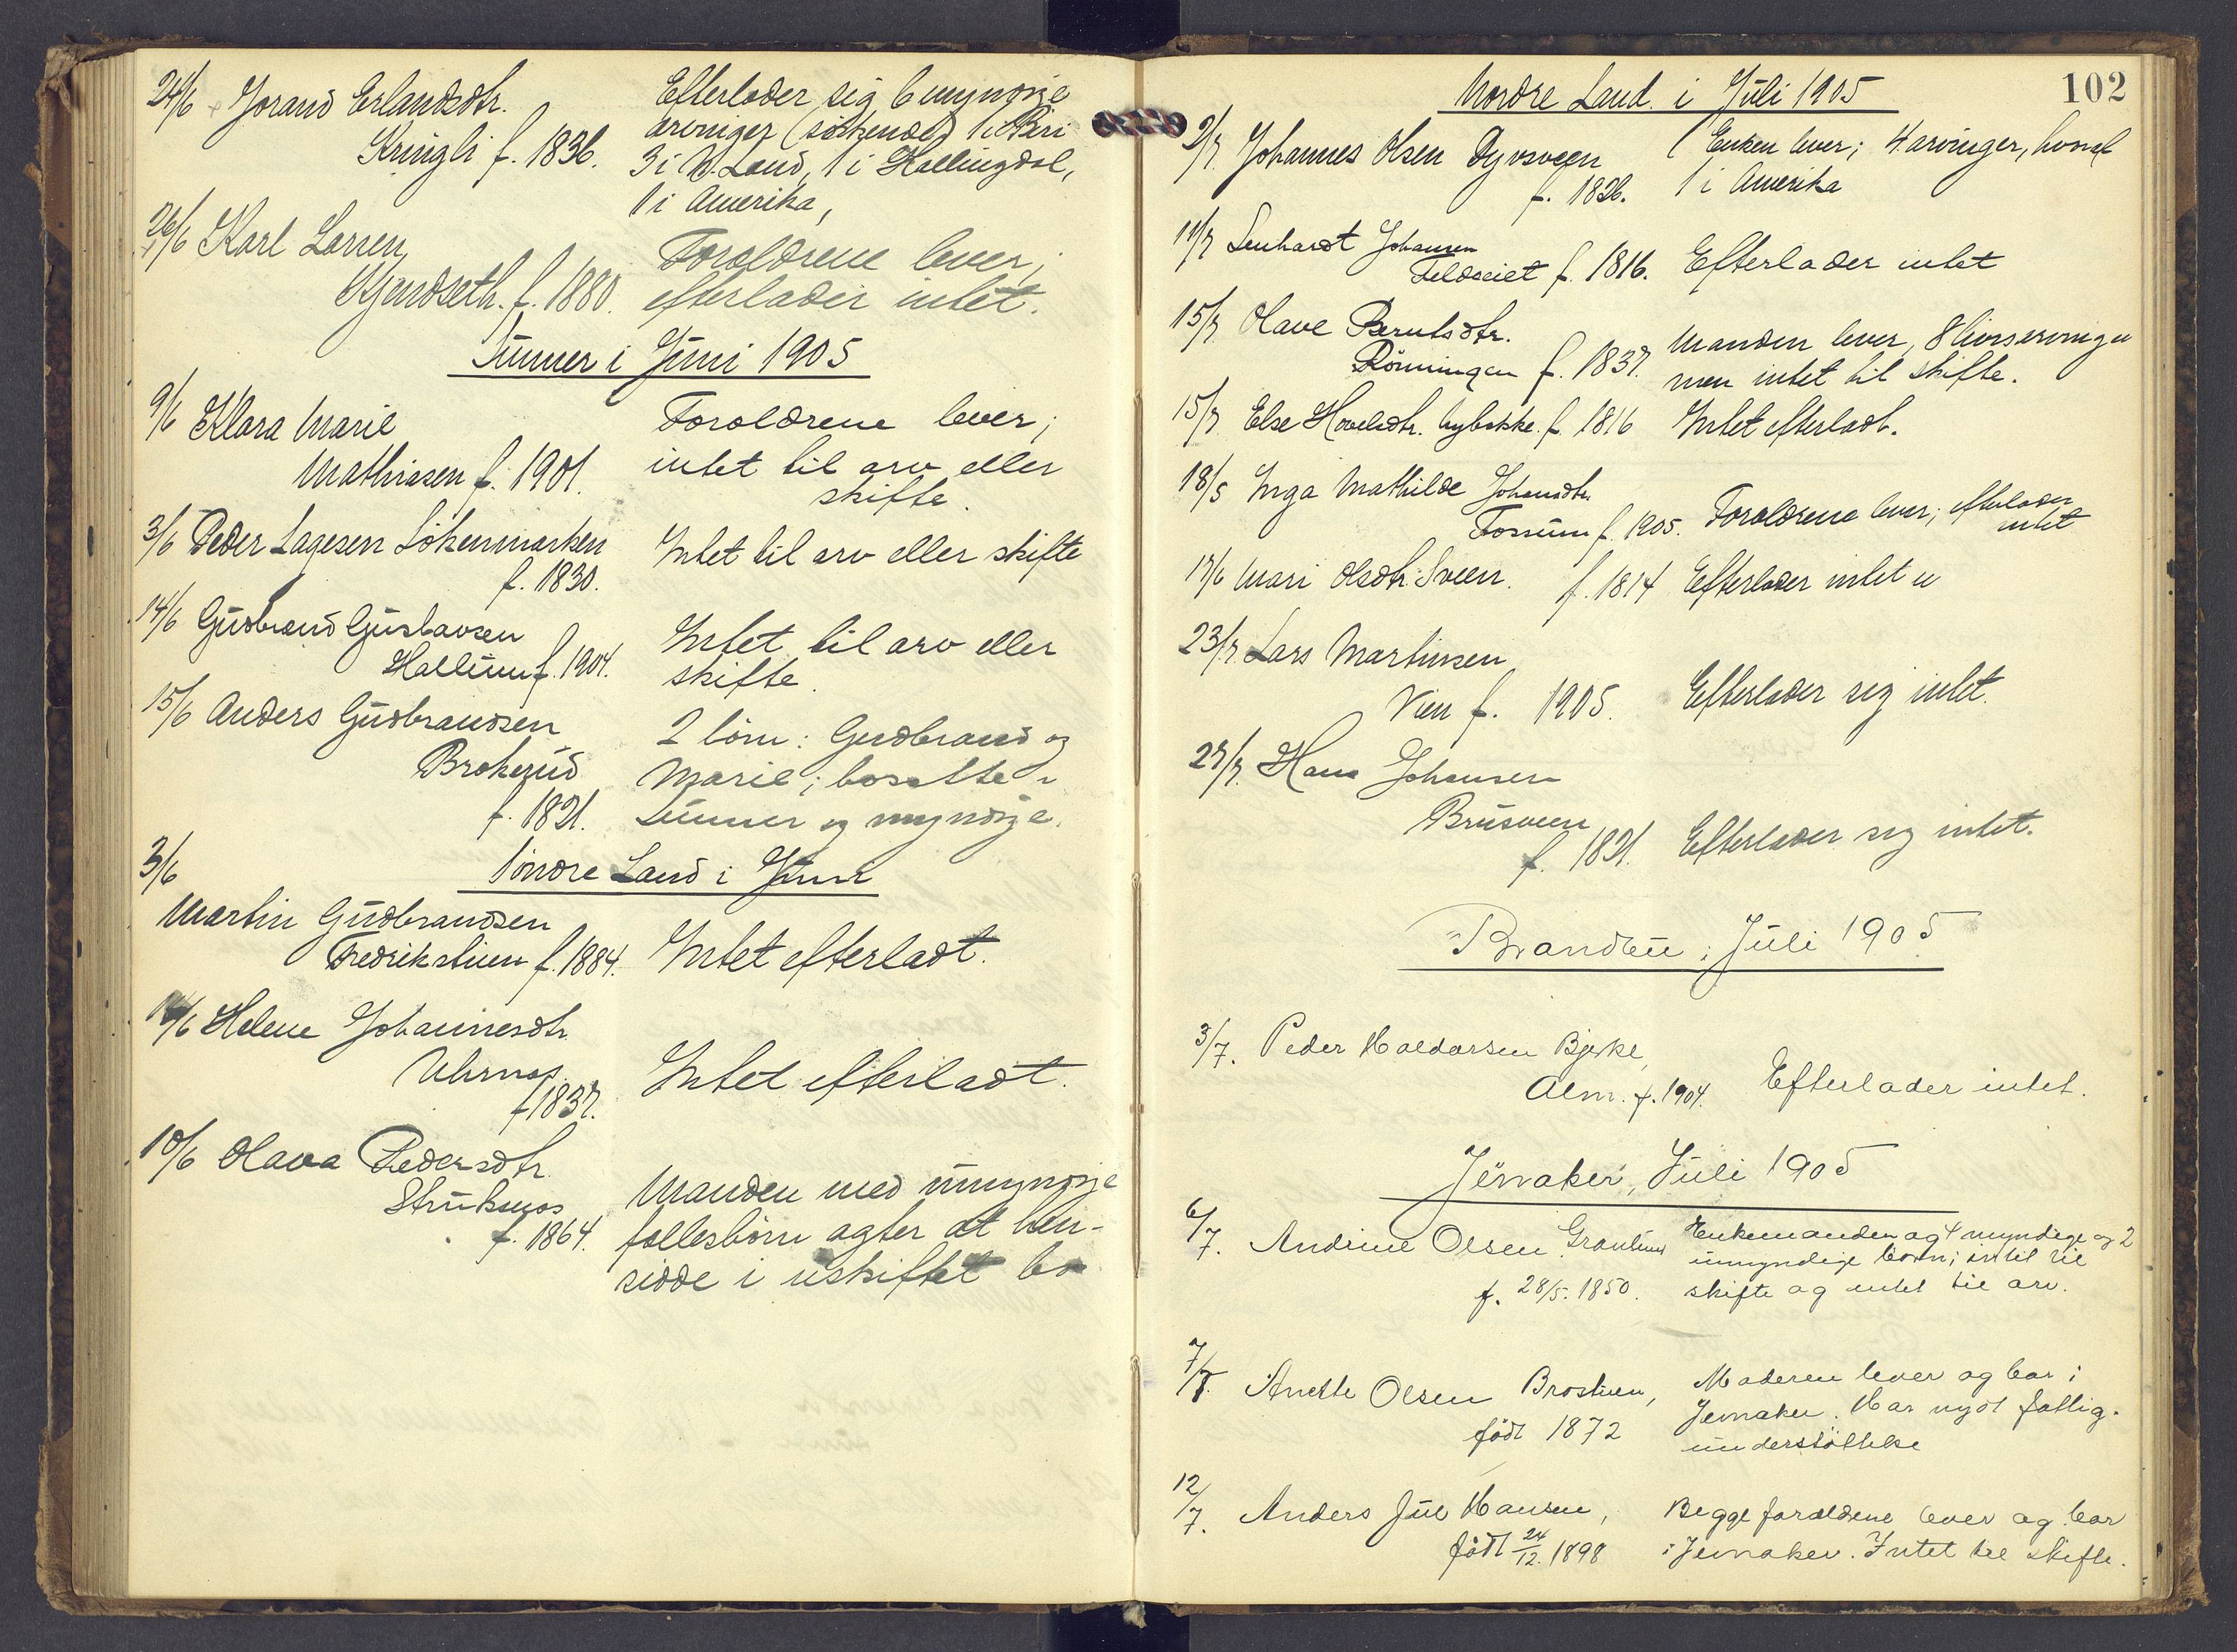 24/6 Jorand Erlandsdtr. Efterlader sig 6 myndige
Kringli f. 1836. arvinger (söskende) 1 i Biri
3 i N. Land, 1 i Hallingdal,
1 i Amerika,
26/6 Karl Larsen Foroldrene lever;
f. 1880. efterlader intet.
Lunner i Juni 1905
9/6 Klara Marie Foroldrene lever;
Mathiasen f. 1901. intet til arv eller
skifte.
3/6 Peder Lagesen Lökenmarken Intet til arv eller skifte
f. 1830.
14/6 Gudbrand Gustavsen Intet til arv eller
Hallum f. 1904. skifte.
15/6 Anders Gudbrandsen 2 börn: Gudbrand og
Brokerud Marie; bosatte i
f. 1821. Lunner og myndige.
Söndre Land i Juni
3/6
Martin Gudbrandsen
Fredrikstuen f. 1884. Intet efterladt.
14/6 Helene Johannesdtr.
Uhrnes Intet efterladt.
f 1837.
10/6 Olava Pedersdtr.
Struksnes Manden med umyndige
f. 1864. fellesbörn agter at hen-
sidde i uskiftet bo
102
Nordre Land i Juli 1905
2/7. Johannes Olsen Dyvsveen Enken lever; 4 arvinger, hvoraf
f. 1826. 1 i Amerika
11/7 Lenhardt Johansen
Feldseiet f. 1816. Efterlader intet
15/7 Olave Berntsdtr. Manden lever, 8 livsarvinger
Rönningen f. 1837. men intet til skifte.
15/7 Else Hovelsdtr. Nybakke f. 1816 Intet efterladt.
18/5 Inga Mathilde Johansdtr.
Fossum f. 1905. Foroldrene lever; efterlader
intet
17/6 Mari Olsdtr. Sveen. f. 1814 Efterlader intet
23/7. Lars Martinsen
Vien f. 1905. Efterlader sig intet.
27/7. Hans Johansen
Brusveen
f. 1821. Efterlader sig intet.
Brandbu i Juli 1905.
3/7. Peder Haldorsen Bjerke,
Alm. f. 1904. Efterlader intet.
Jevnaker, Juli 1905
6/7. Andrine Olsen Enkemanden og 4 myndige og 2
umyndige börn; intet til
f. 28/5. 1850. skifte og intet til arv.
7/7. Anette Olsen Moderen lever og bor i
Jevnaker. Har nydt fattig-
född 1872 understöttelse
12/7. Anders Jul Hansen, Begge foreldrene lever og bor
född 24/12. 1898 i Jevnaker. Intet til skifte.